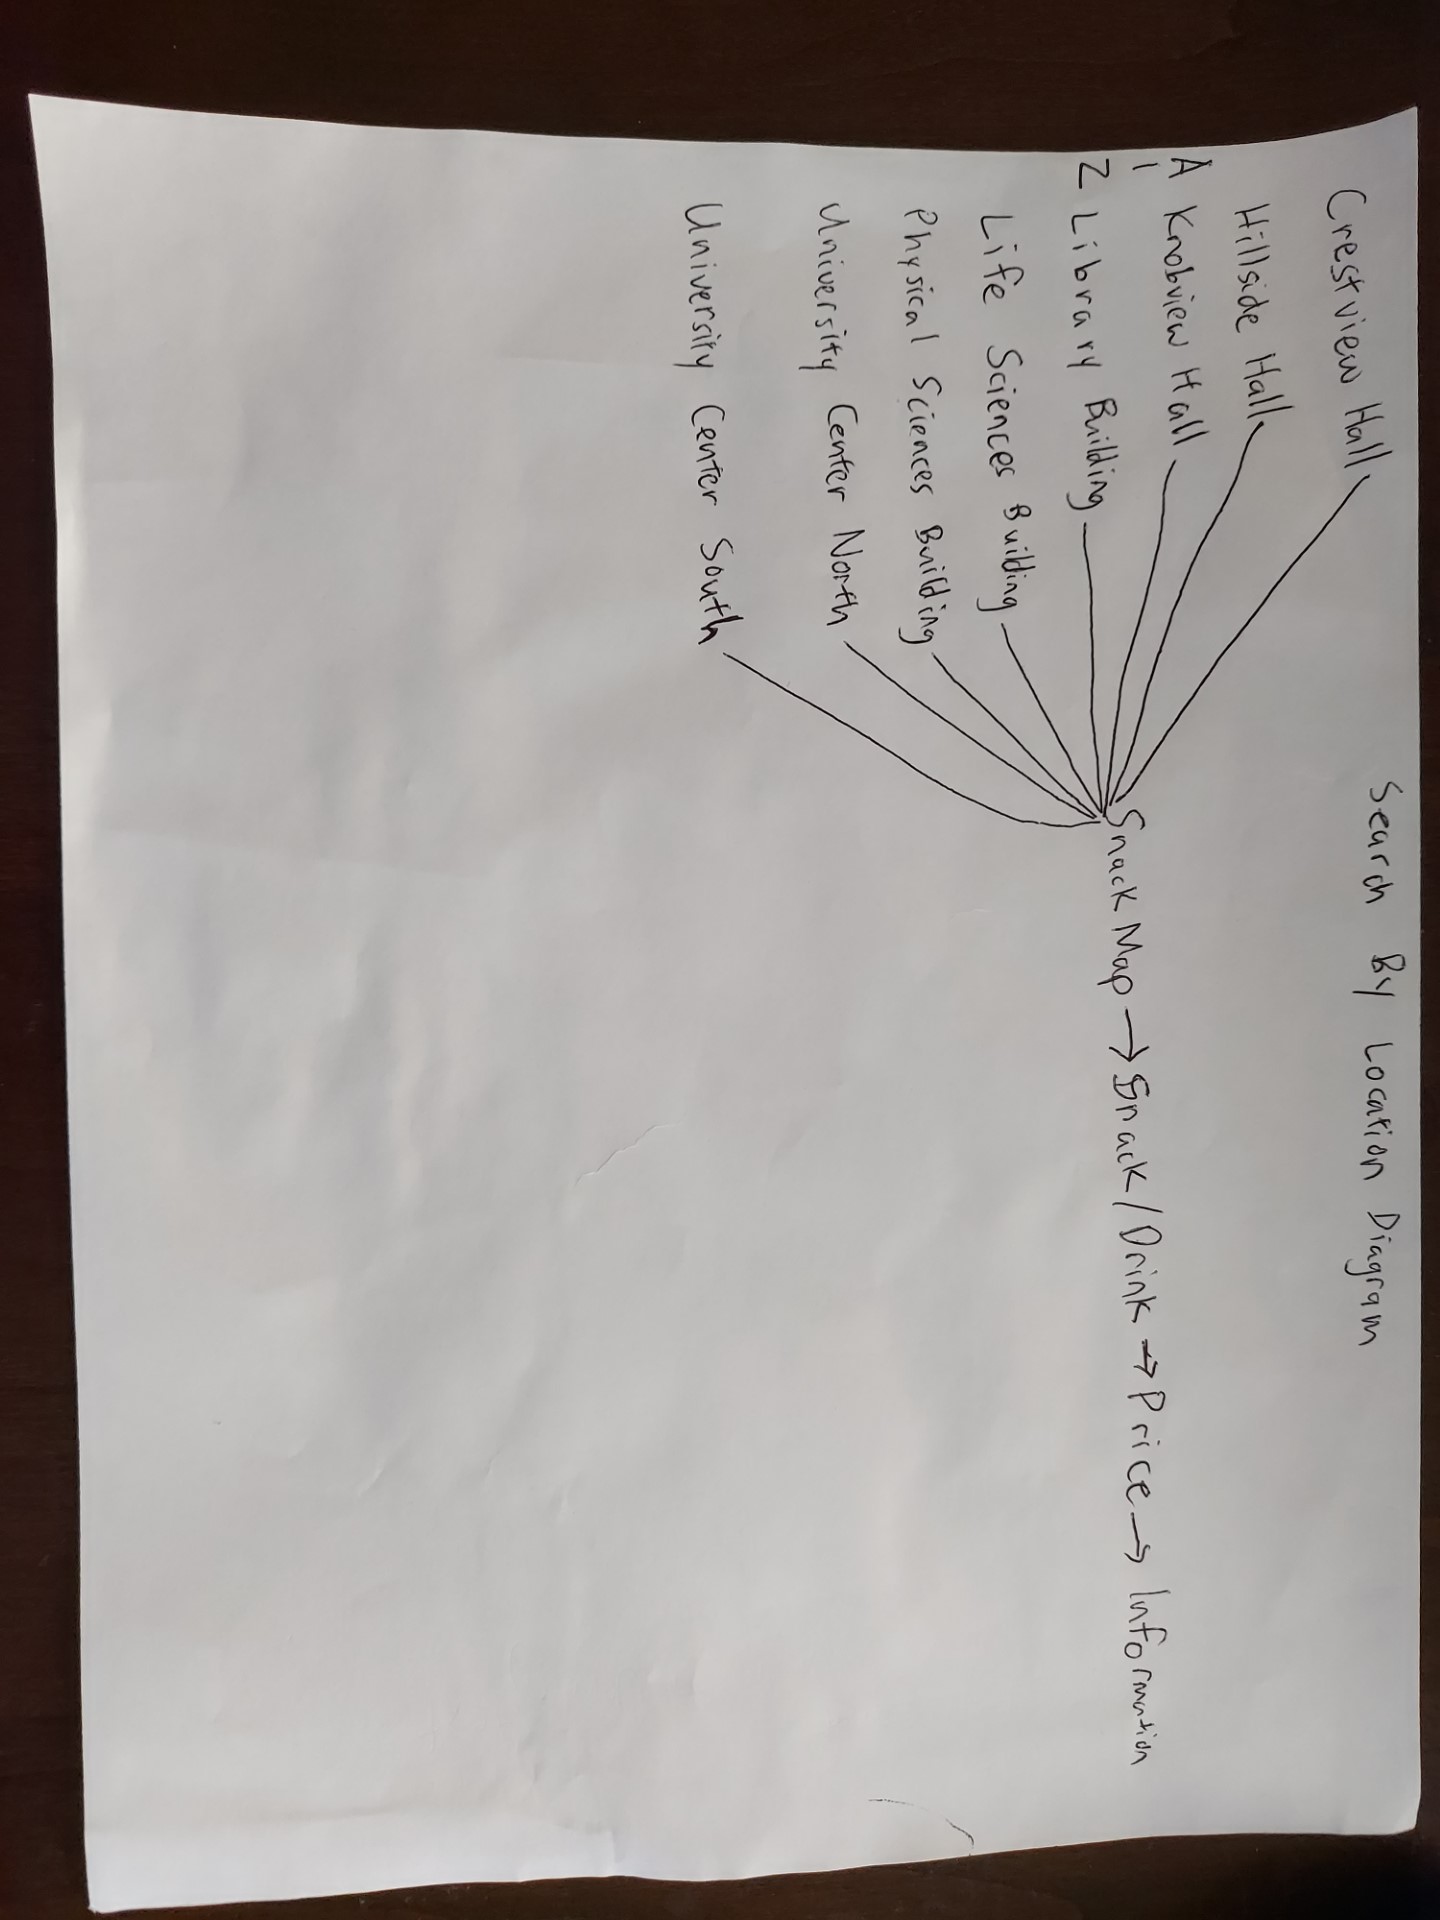 Search By Location Diagram
Crestview Hall
Hillside Hall
A Knobview Hall
|
Z Library Building
Life Sciences Building
Physical Sciences Building
University Center North
University Center South
Snack Map → Snack/Drink → Price → Information